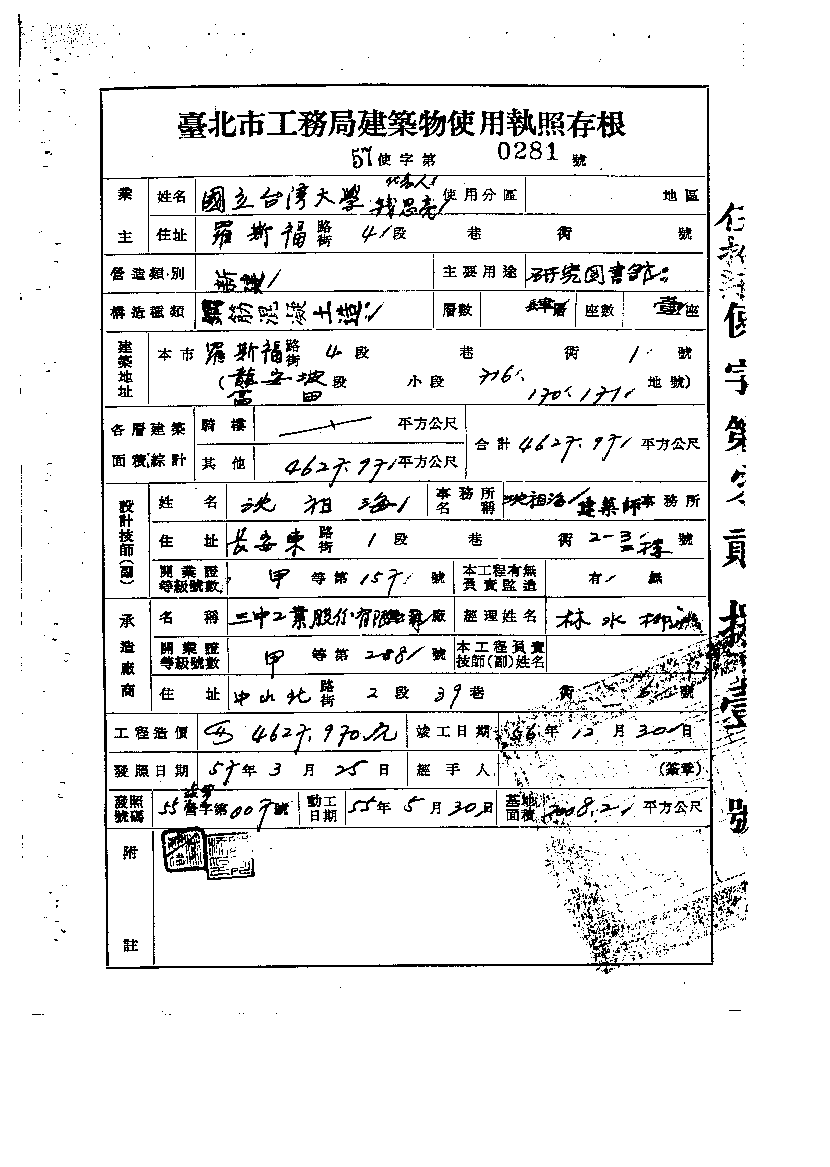 臺北市工務局建築物使用執照存根
57使字第 0281 號
業主 姓名 國立台湾大學 代表人:錢思亮 使用分區 地區
住址 羅斯福 路街 4段 巷 衖 號
營造類別 新建 主要用途 研究図書館
構造種類 鋼筋混凝土造 層數 肆層 座數 壹座
建築地址 本市 羅斯福 路街 4段 巷 衖 1 號
(龍安坡 富田 段 小段 716. 170. 171. 地號)
各層建築面積綜計 騎樓 平方公尺 合計 4627.97 平方公尺
其他 4627.97 平方公尺
設計技師(副) 姓名 沈祖海 事務所名稱 沈祖海建築師事務所
住址 長安東 路街 1段 巷 衖 2-3 號
開業證等級號數 甲 等第 157 號 本工程有無負責監造 有 無
承造廠商 名稱 三中工業股份有限 廠 經理姓名 林水
開業證等級號數 甲 等第 288 號 本工程負責技師(副)姓名
住址 中山北 路街 2段 39巷 衖 6 號
工程造價 4627.970元 竣工日期 56年12月30日
發照日期 57年3月25日 經手人 (簽章)
發照號碼 55 營字第 007 號 動工日期 55年5月30日 基地面積 2008.21 平方公尺
附註
使字第 壹 號